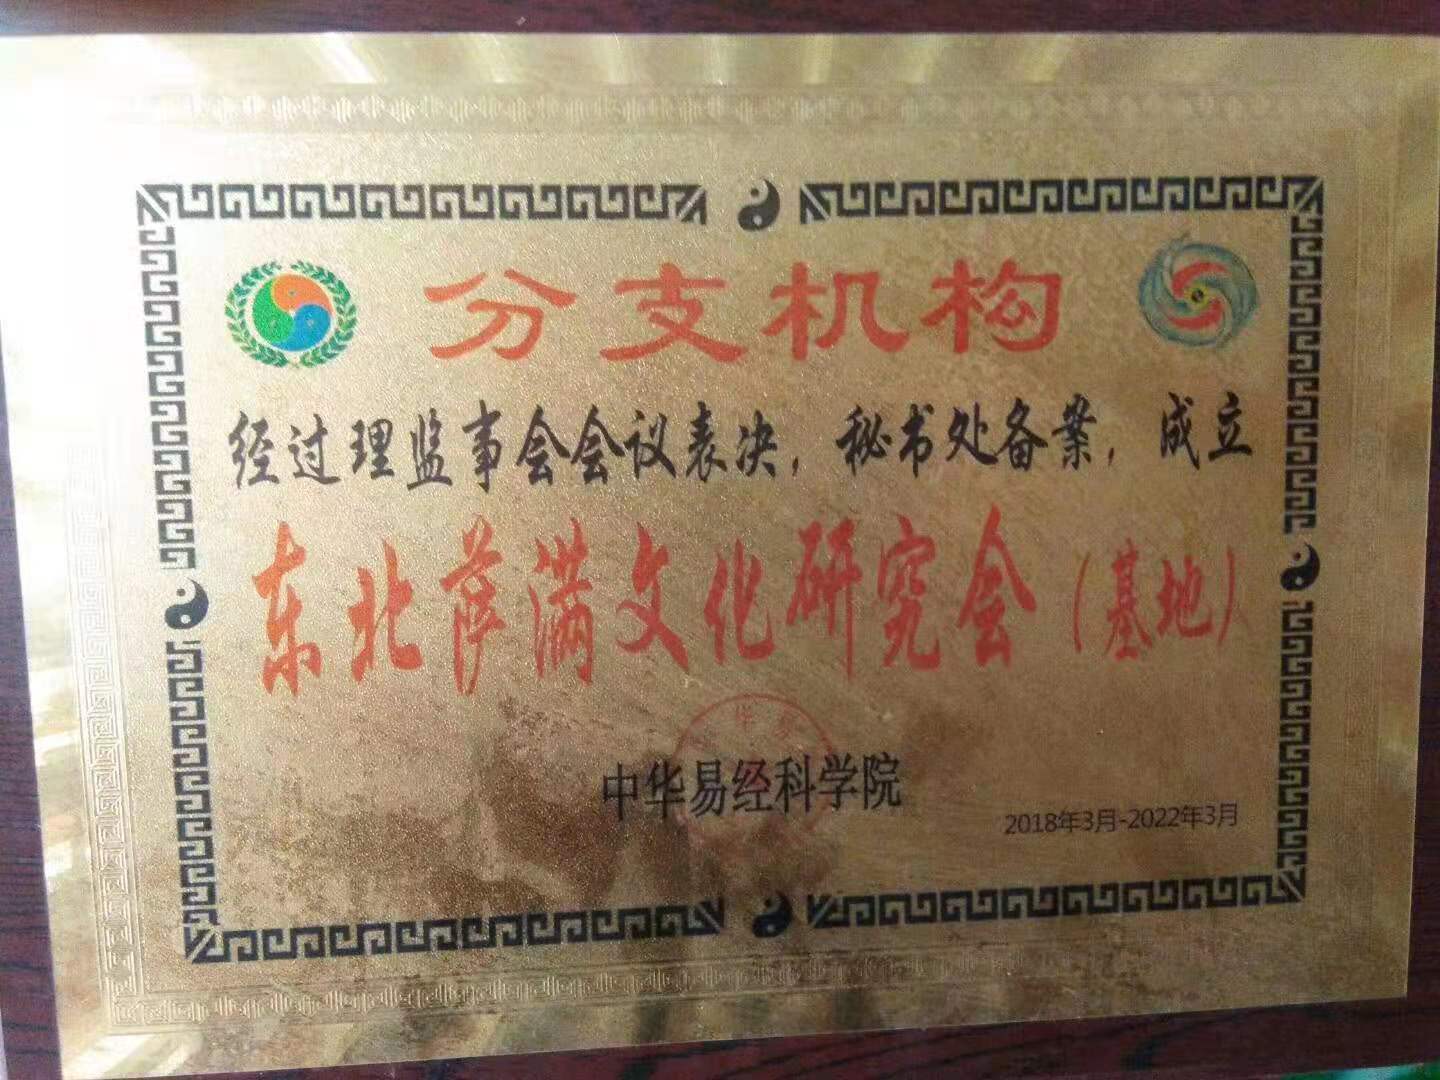 分支机构
经过理监事会会议表决，秘书处备案，成立
东北萨满文化研究会（基地）
中华易经科学院
2018年3月-2022年3月